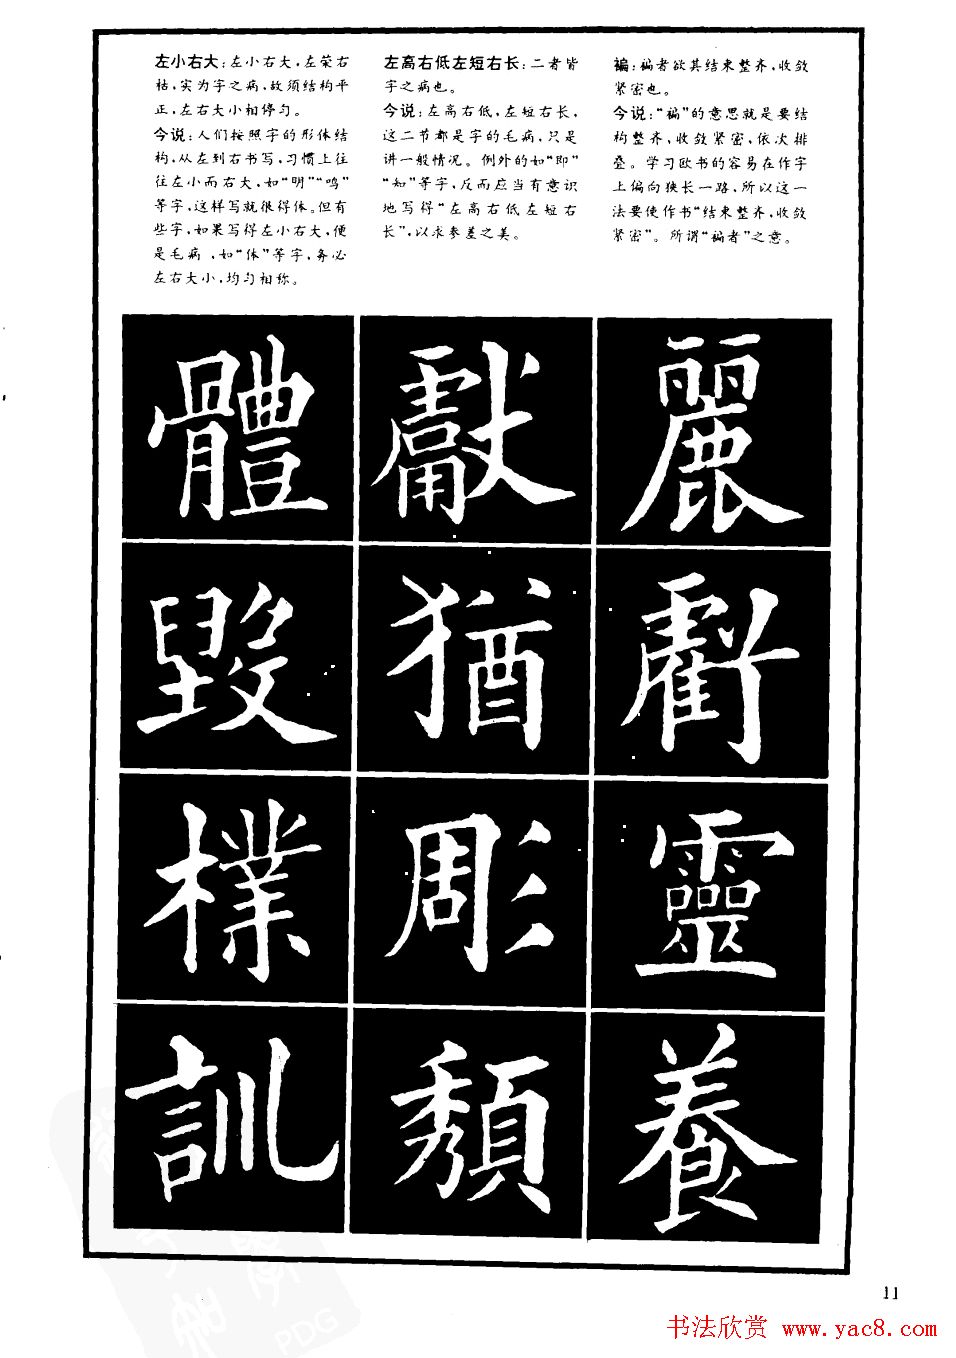 左小右大:左小右大,左荣右
枯,实为字之病,故须结构平
正,左右大小相停匀。
今说:人们按照字的形体结
构,从左到右书写,习惯上往
往左小而右大,如“明”“鸣”
等字,这样写就很得体。但有
些字,如果写得左小右大,便
是毛病,如“体”等字,务必
左右大小,均匀相称。
左高右低左短右长:二者皆
字之病也。
今说:左高右低,左短右长,
这二节都是字的毛病,只是
讲一般情况。例外的如“即”
“知”等字,反而应当有意识
地写得“左高右低左短右
长”,以求参差之美。
褊:褊者欲其结束整齐,收敛
紧密也。
今说:“褊”的意思就是要结
构整齐,收敛紧密,依次排
叠。学习欧书的容易在作字
上偏向狭长一路,所以这一
法要使作书“结束整齐,收敛
紧密”。所谓“褊者”之意。
體 獻 麗
毀 猶 虧
樸 彫 靈
訓 頹 養
11
书法欣赏 www.yac8.com
PDG